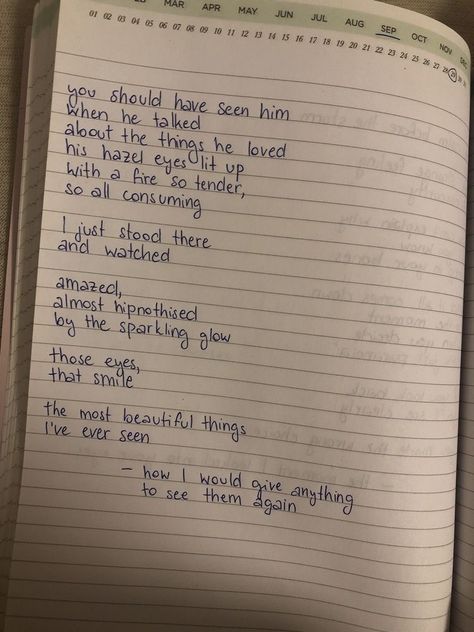 MAR APR MAY JUN JUL AUG SEP OCT NOV DEC
01 02 03 04 05 06 07 08 09 10 11 12 13 14 15 16 17 18 19 20 21 22 23 24 25 26 27 28 29 30
you should have seen him
when he talked
about the things he loved
his hazel eyes lit up
with a fire so tender,
so all consuming
I just stood there
and watched
amazed,
almost hipnothised
by the sparkling glow
those eyes,
that smile
the most beautiful things
I've ever seen
– how I would give anything
to see them again